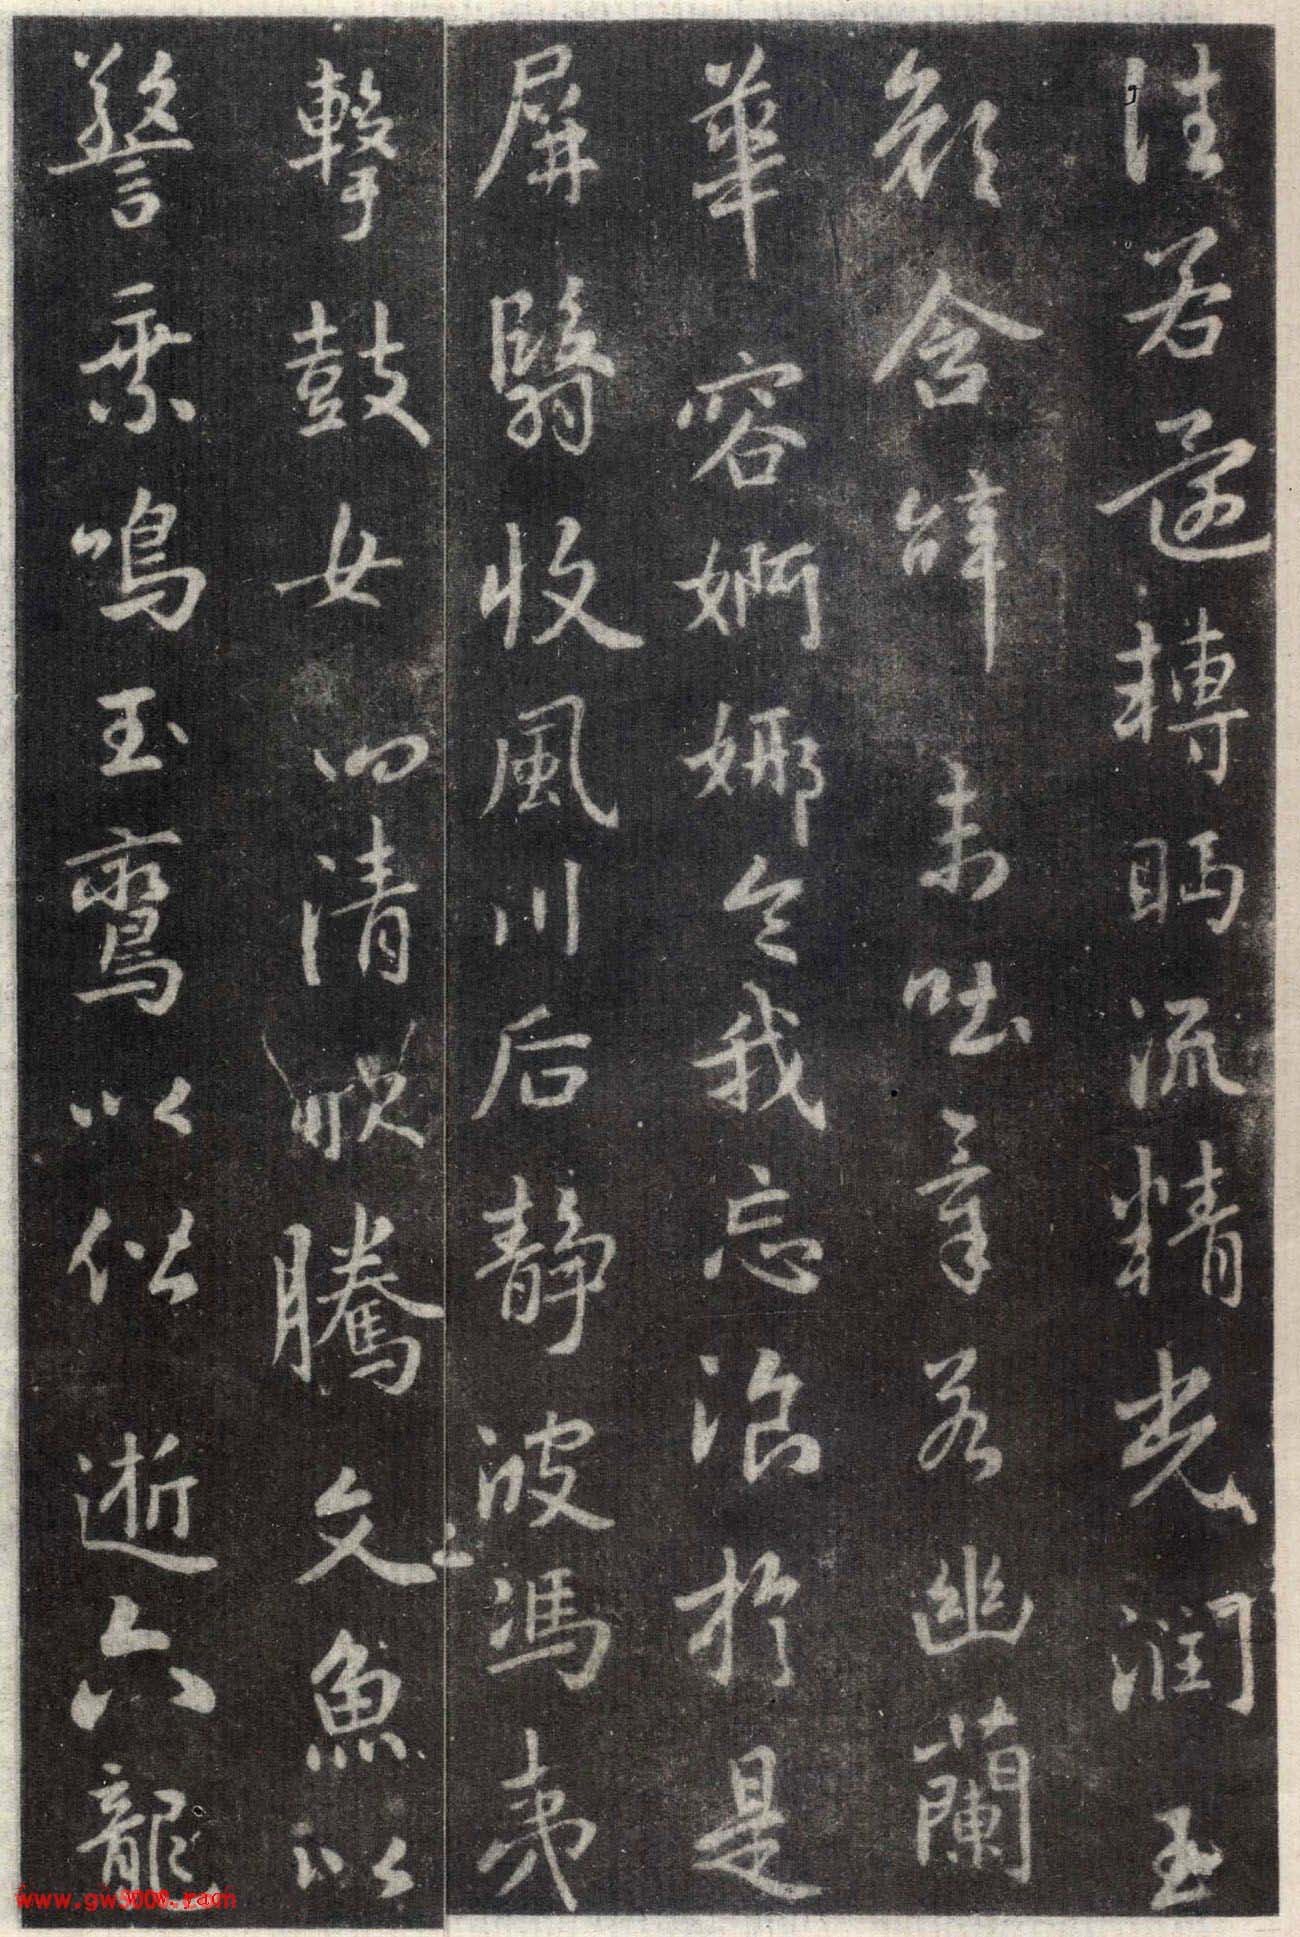 往若還轉眄流精光潤玉
顏含辭未吐氣若幽蘭
華容婀娜令我忘飡於是
屏翳收風川后靜波馮夷
擊鼓女清騰文魚以
警乘鳴玉鸞以偕逝六龍